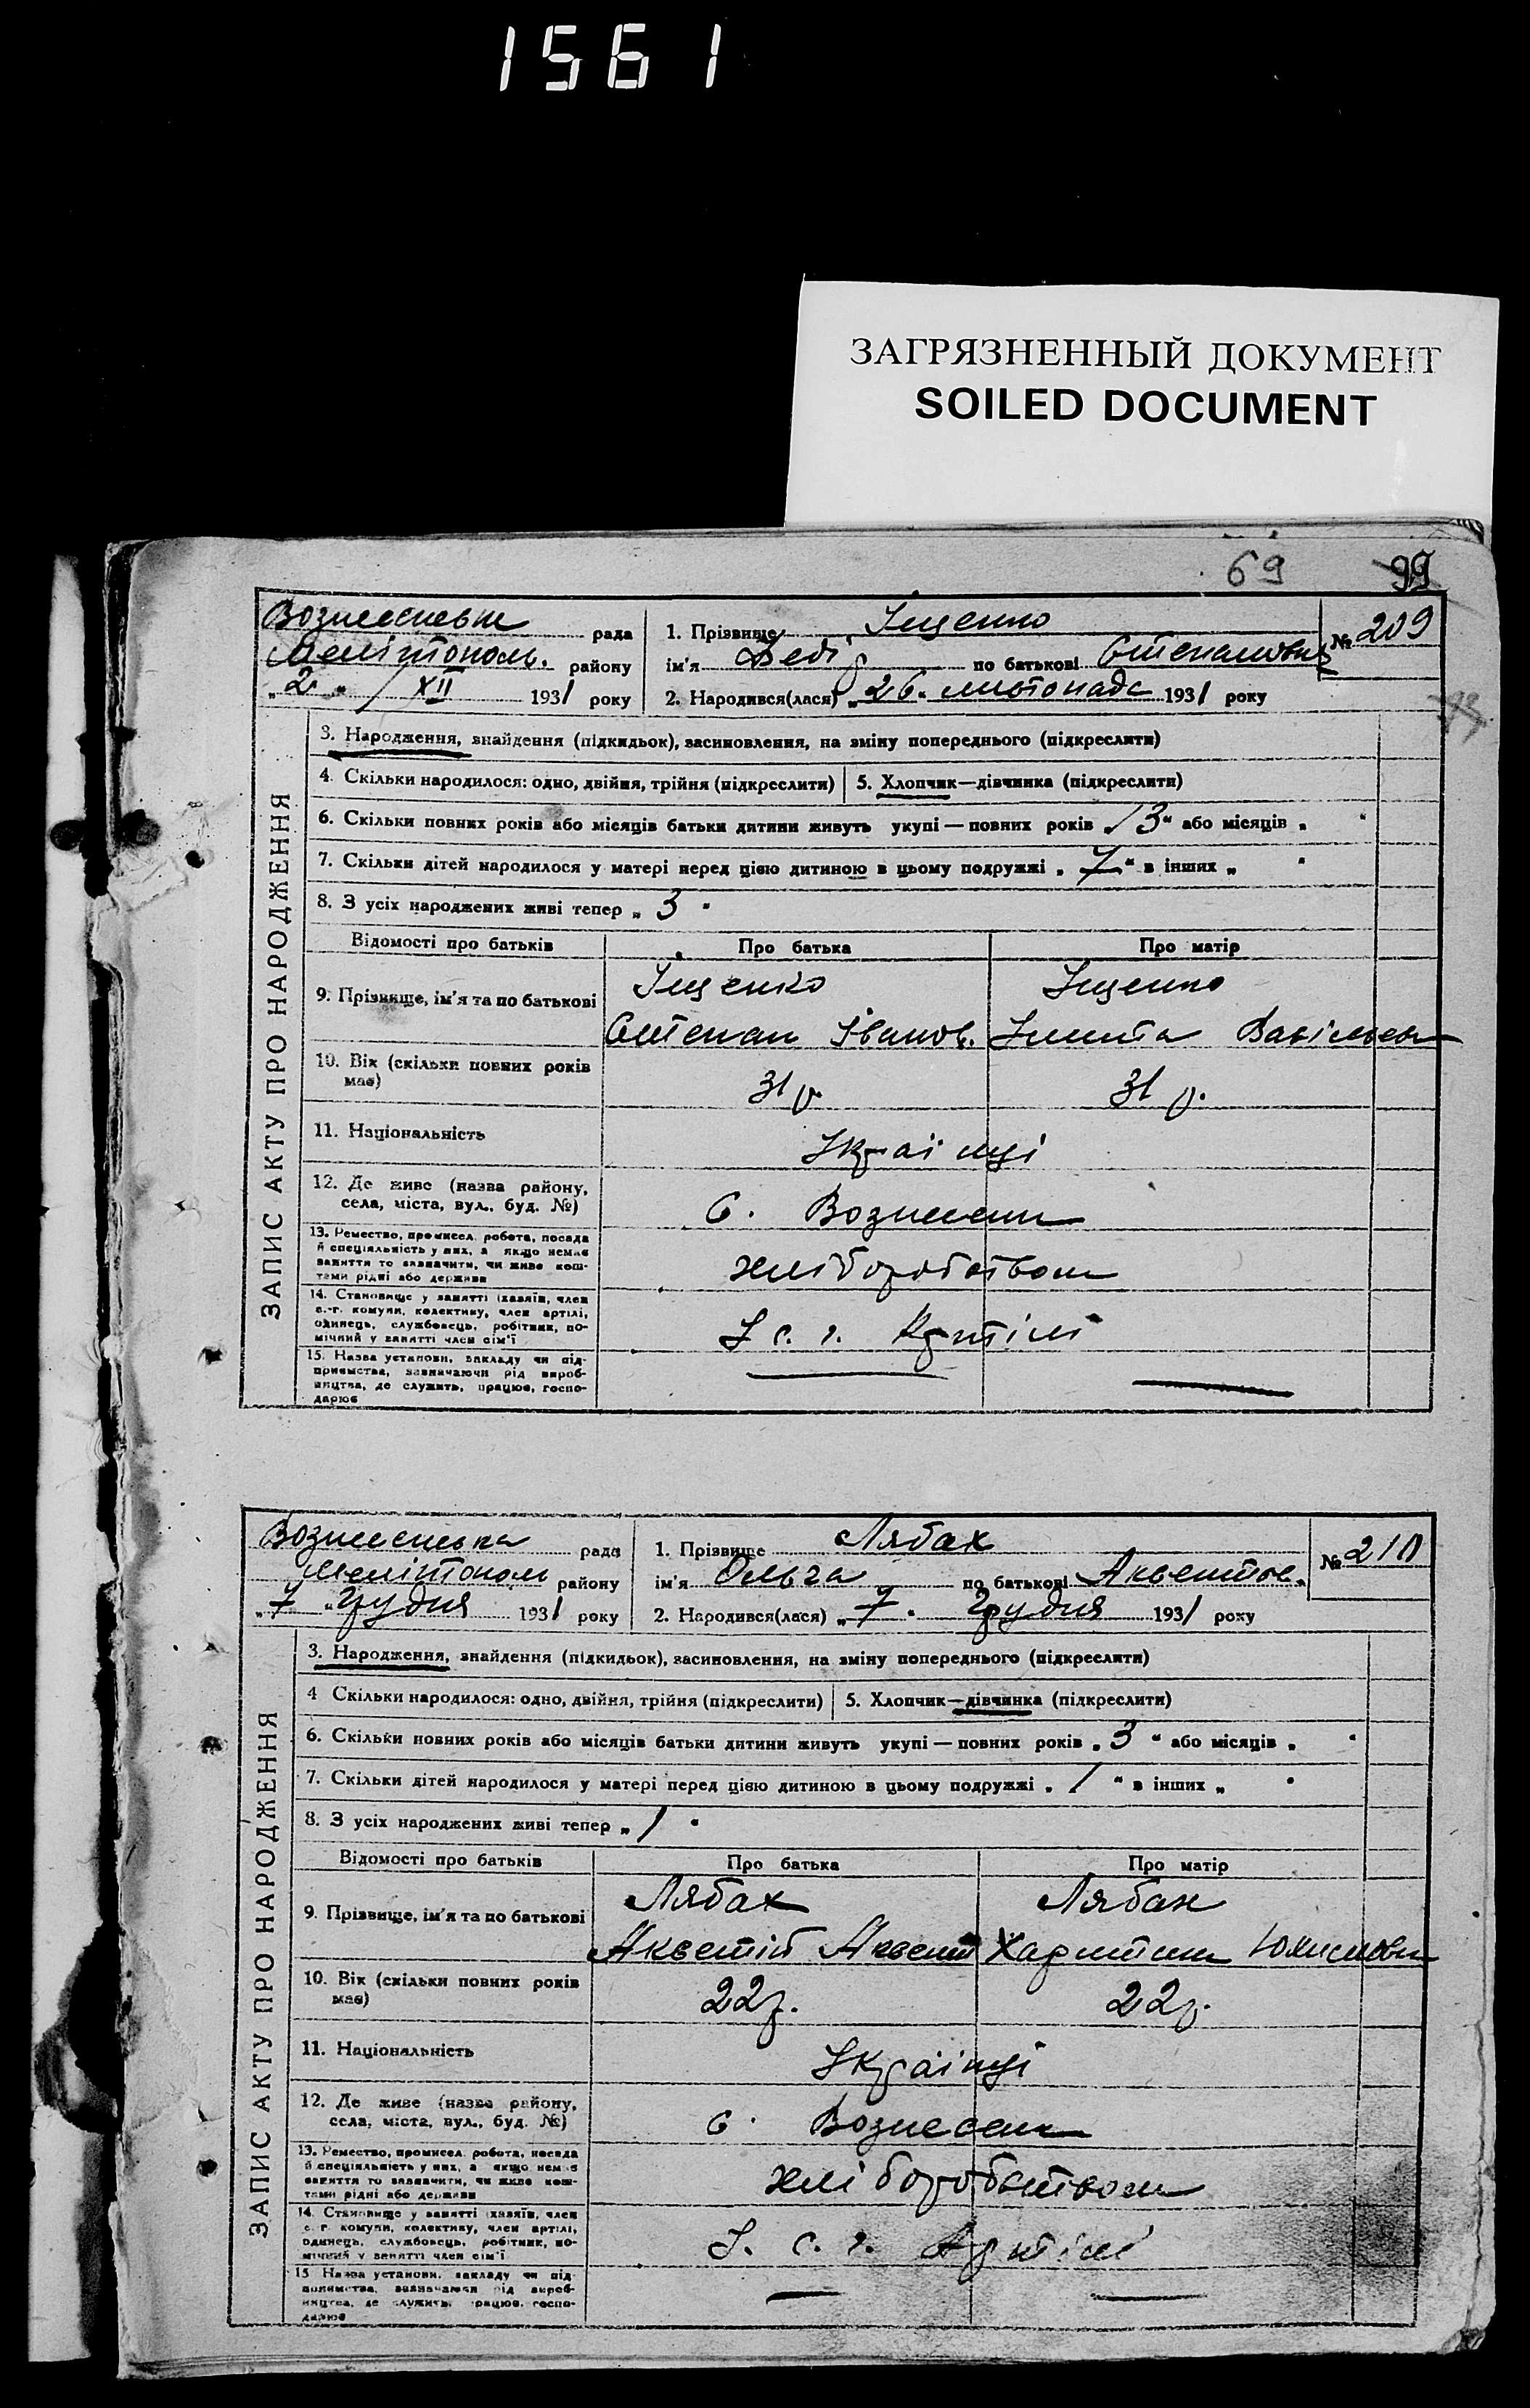 1561
ЗАГРЯЗНЕННЫЙ ДОКУМЕНТ
SOILED DOCUMENT
69 99
ЗАПИС АКТУ ПРО НАРОДЖЕННЯ
рада
Мелітополь. району
"2" / XII 1931 року
1. Прізвище Іщенко
№ 209
ім'я по батькові Степанович
2. Народився(лася) „26" листопада 1931 року
3. Народження, знайдення (підкидьок), засиновлення, на зміну попереднього (підкреслити)
4. Скільки народилося: одно, двійня, трійня (підкреслити)
5. Хлопчик—дівчинка (підкреслити)
6. Скільки повних років або місяців батьки дитини живуть укупі — повних років „13" або місяців „ "
7. Скільки дітей народилося у матері перед цією дитиною в цьому подружжі „7" в інших „ "
8. З усіх народжених живі тепер „3"
Відомості про батьків Про батька Про матір
9. Прізвище, ім'я та по батькові Іщенко Іщенко
Степан Іванов.
10. Вік (скільки повних років має) 31 р. 31 р.
11. Національність Українці
12. Де живе (назва району, села, міста, вул., буд. №) С.
13. Ремество, промисел, робота, посада
й спеціяльність у них, а якщо немає
заняття то зазначити, чи живе кош-
тами рідні або держави
хліборобством
14. Становище у занятті (хазяїн, член
с.-г. комуни, колективу, член артілі,
одинець, службовець, робітник, по-
мічний у занятті член сім'ї
с. г. Артілі
15. Назва установи, закладу чи під-
приємства, зазначаючи рід вироб-
ництва, де служить, працює, госпо-
дарює
ЗАПИС АКТУ ПРО НАРОДЖЕННЯ
Вознесенська рада
Мелітопол району
„7" Грудня 1931 року
1. Прізвище Лябах
№ 210
ім'я Ольга по батькові
2. Народився(лася) „7" Грудня 1931 року
3. Народження, знайдення (підкидьок), засиновлення, на зміну попереднього (підкреслити)
4 Скільки народилося: одно, двійня, трійня (підкреслити)
5. Хлопчик—дівчинка (підкреслити)
6. Скільки повних років або місяців батьки дитини живуть укупі — повних років „3" або місяців „ "
7. Скільки дітей народилося у матері перед цією дитиною в цьому подружжі „1" в інших „ "
8. З усіх народжених живі тепер „1"
Відомості про батьків Про батька Про матір
9. Прізвище, ім'я та по батькові Лябах Лябах
10. Вік (скільки повних років має) 22 р. 22 р.
11. Національність Українці
12. Де живе (назва району, села, міста, вул., буд. №) С.
13. Ремество, промисел, робота, посада
й спеціяльність у них, а якщо немає
заняття то зазначити, чи живе кош-
тами рідні або держави
хліборобством
14. Становище у занятті (хазяїн, член
с.-г. комуни, колективу, член артілі,
одинець, службовець, робітник, по-
мічний у занятті член сім'ї
с. г. Артілі
15 Назва установи, закладу чи під-
приємства, зазначаючи рід вироб-
ництва, де служить, працює, госпо-
дарює